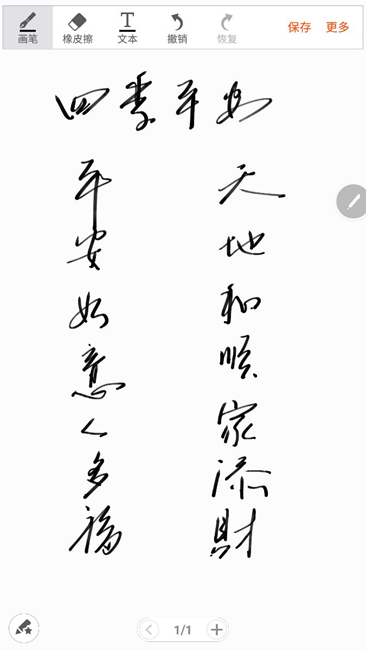 画笔 橡皮擦 文本 撤销 恢复 保存 更多
四季平安
天地和順家添財
平安如意人多福
1/1